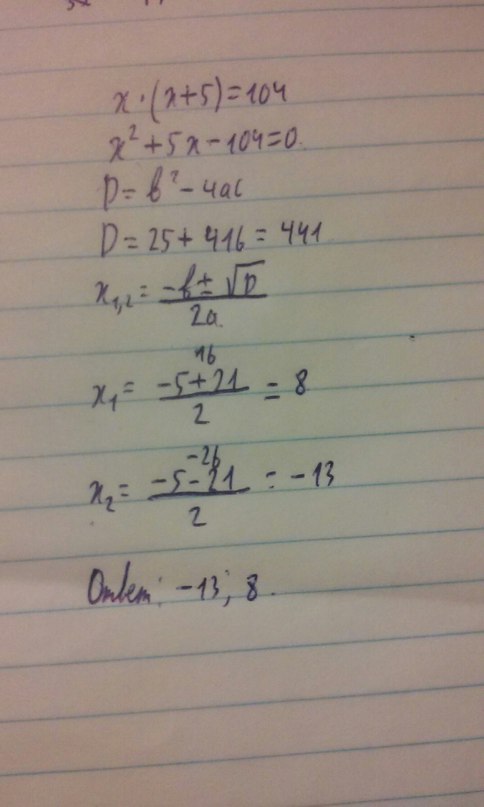 x·(x+5)=104
x²+5x-104=0
D=b²-4ac
D=25+416=441
x₁,₂=(-b±√D)/2a
16
x₁=(-5+21)/2=8
-26
x₂=(-5-21)/2=-13
Ответ: -13; 8.